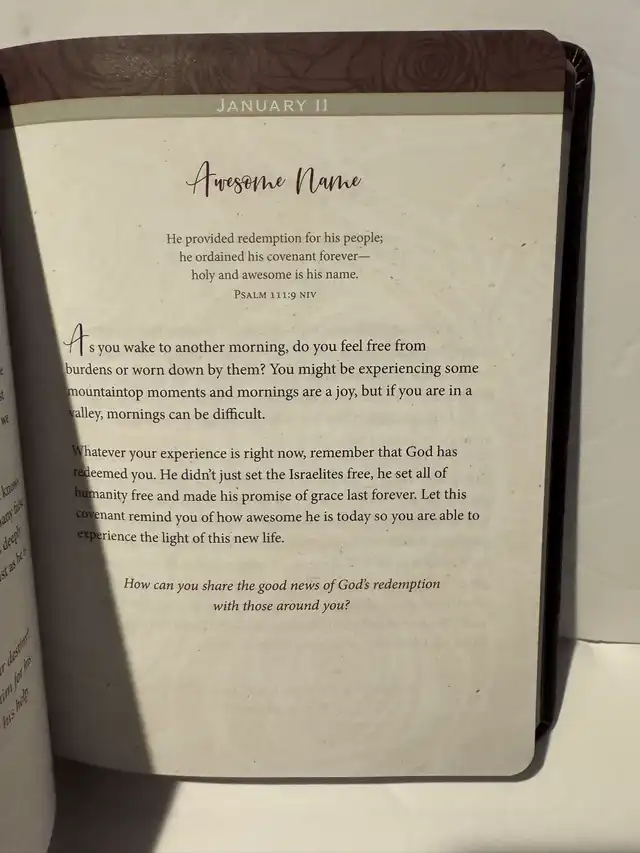 JANUARY 11
Awesome Name
He provided redemption for his people;
he ordained his covenant forever—
holy and awesome is his name.
PSALM 111:9 NIV
As you wake to another morning, do you feel free from
burdens or worn down by them? You might be experiencing some
mountaintop moments and mornings are a joy, but if you are in a
valley, mornings can be difficult.
Whatever your experience is right now, remember that God has
redeemed you. He didn't just set the Israelites free, he set all of
humanity free and made his promise of grace last forever. Let this
covenant remind you of how awesome he is today so you are able to
experience the light of this new life.
How can you share the good news of God's redemption
with those around you?
we
know
deeply
his help.